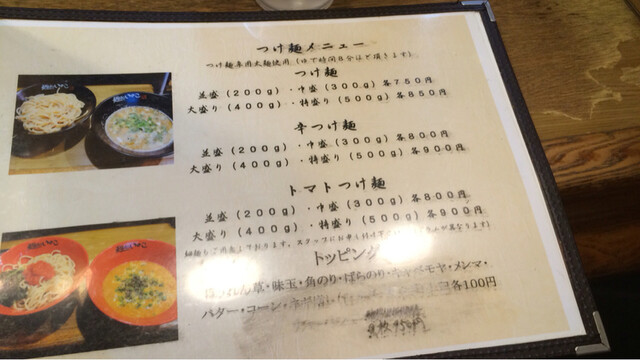 つけ麺メニュー
つけ麺専用太麺使用(ゆで時間8分ほど頂きます)
つけ麺
並盛(200g)・中盛(300g)各750円
大盛り(400g)・特盛り(500g)各850円
辛つけ麺
並盛(200g)・中盛(300g)各800円
大盛り(400g)・特盛り(500g)各900円
トマトつけ麺
並盛(200g)・中盛(300g)各800円
大盛り(400g)・特盛り(500g)各900円
細麺もご用意しております。スタッフにお申し付け下さい
が異なります)
トッピング
ほうれん草・味玉・角のり・ばらのり・キャベモヤ・メンマ・
バター・コーン・
各100円